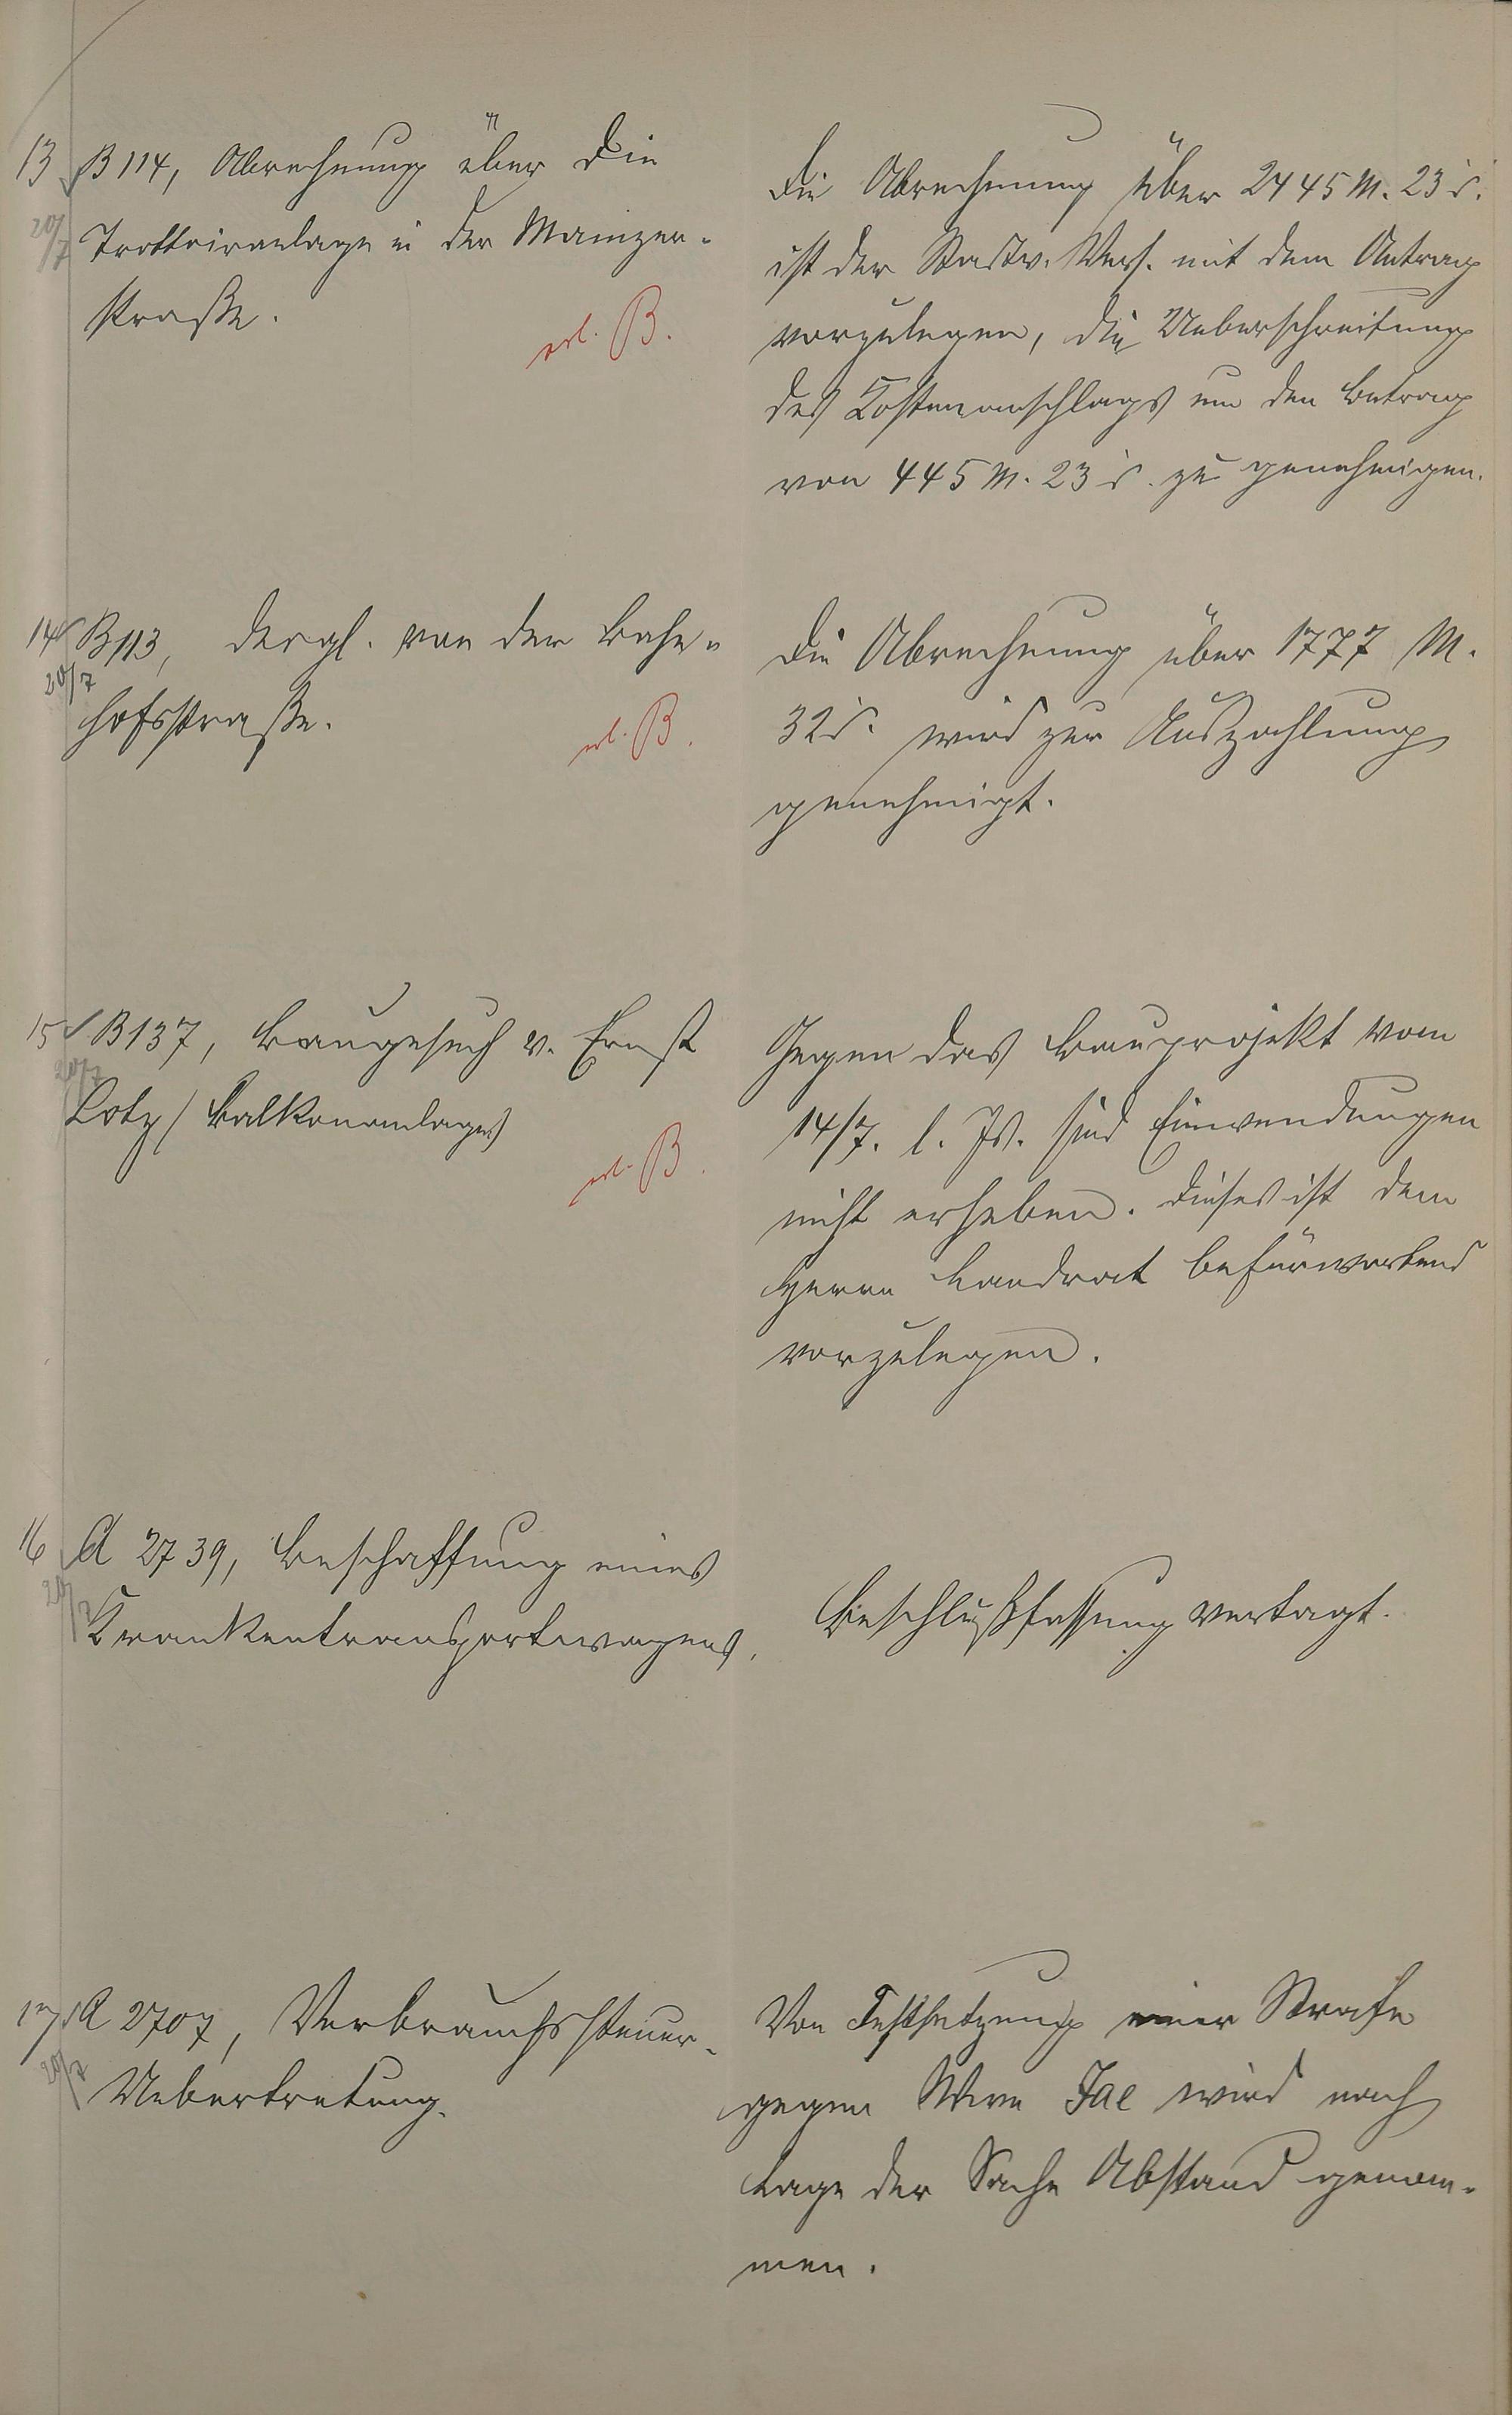 13 B 114, Abrechnung über die
20/7
Trottoiranlage in der Mainzer-
straße.
erl. B.
Die Abrechnung über 2445 M. 23 ₰.
ist der Stadtv. Vers. mit dem Antrag
vorzulegen, die Ueberschreitung
des Kostenanschlags um den Betrag
von 445 M. 23 ₰. zu genehmigen.
14 B 113, desgl. von der Bahn-
20/7
hofsstraße.
erl. B.
Die Abrechnung über 1777 M.
32 ₰. wird zur Auszahlung
genehmigt.
15 B 137, Baugesuch v. Ernst
20/7
Lotz (Balkonanlage)
erl. B.
Gegen das Bauprojekt vom
14/7. l. Js. sind Einwendungen
nicht erheben. Dieses ist dem
Herrn Landrat befürwortend
vorzulegen.
16 A 2739, Beschaffung eines
20/7
Krankentransportwagens.
Beschlußfassung vertagt.
17 A 2707, Verbrauchssteuer-
20/7
Uebertretung.
Von Festsetzung einer Strafe
gegen Wwe Jae wird nach
Lage der Sache Abstand genom-
men.